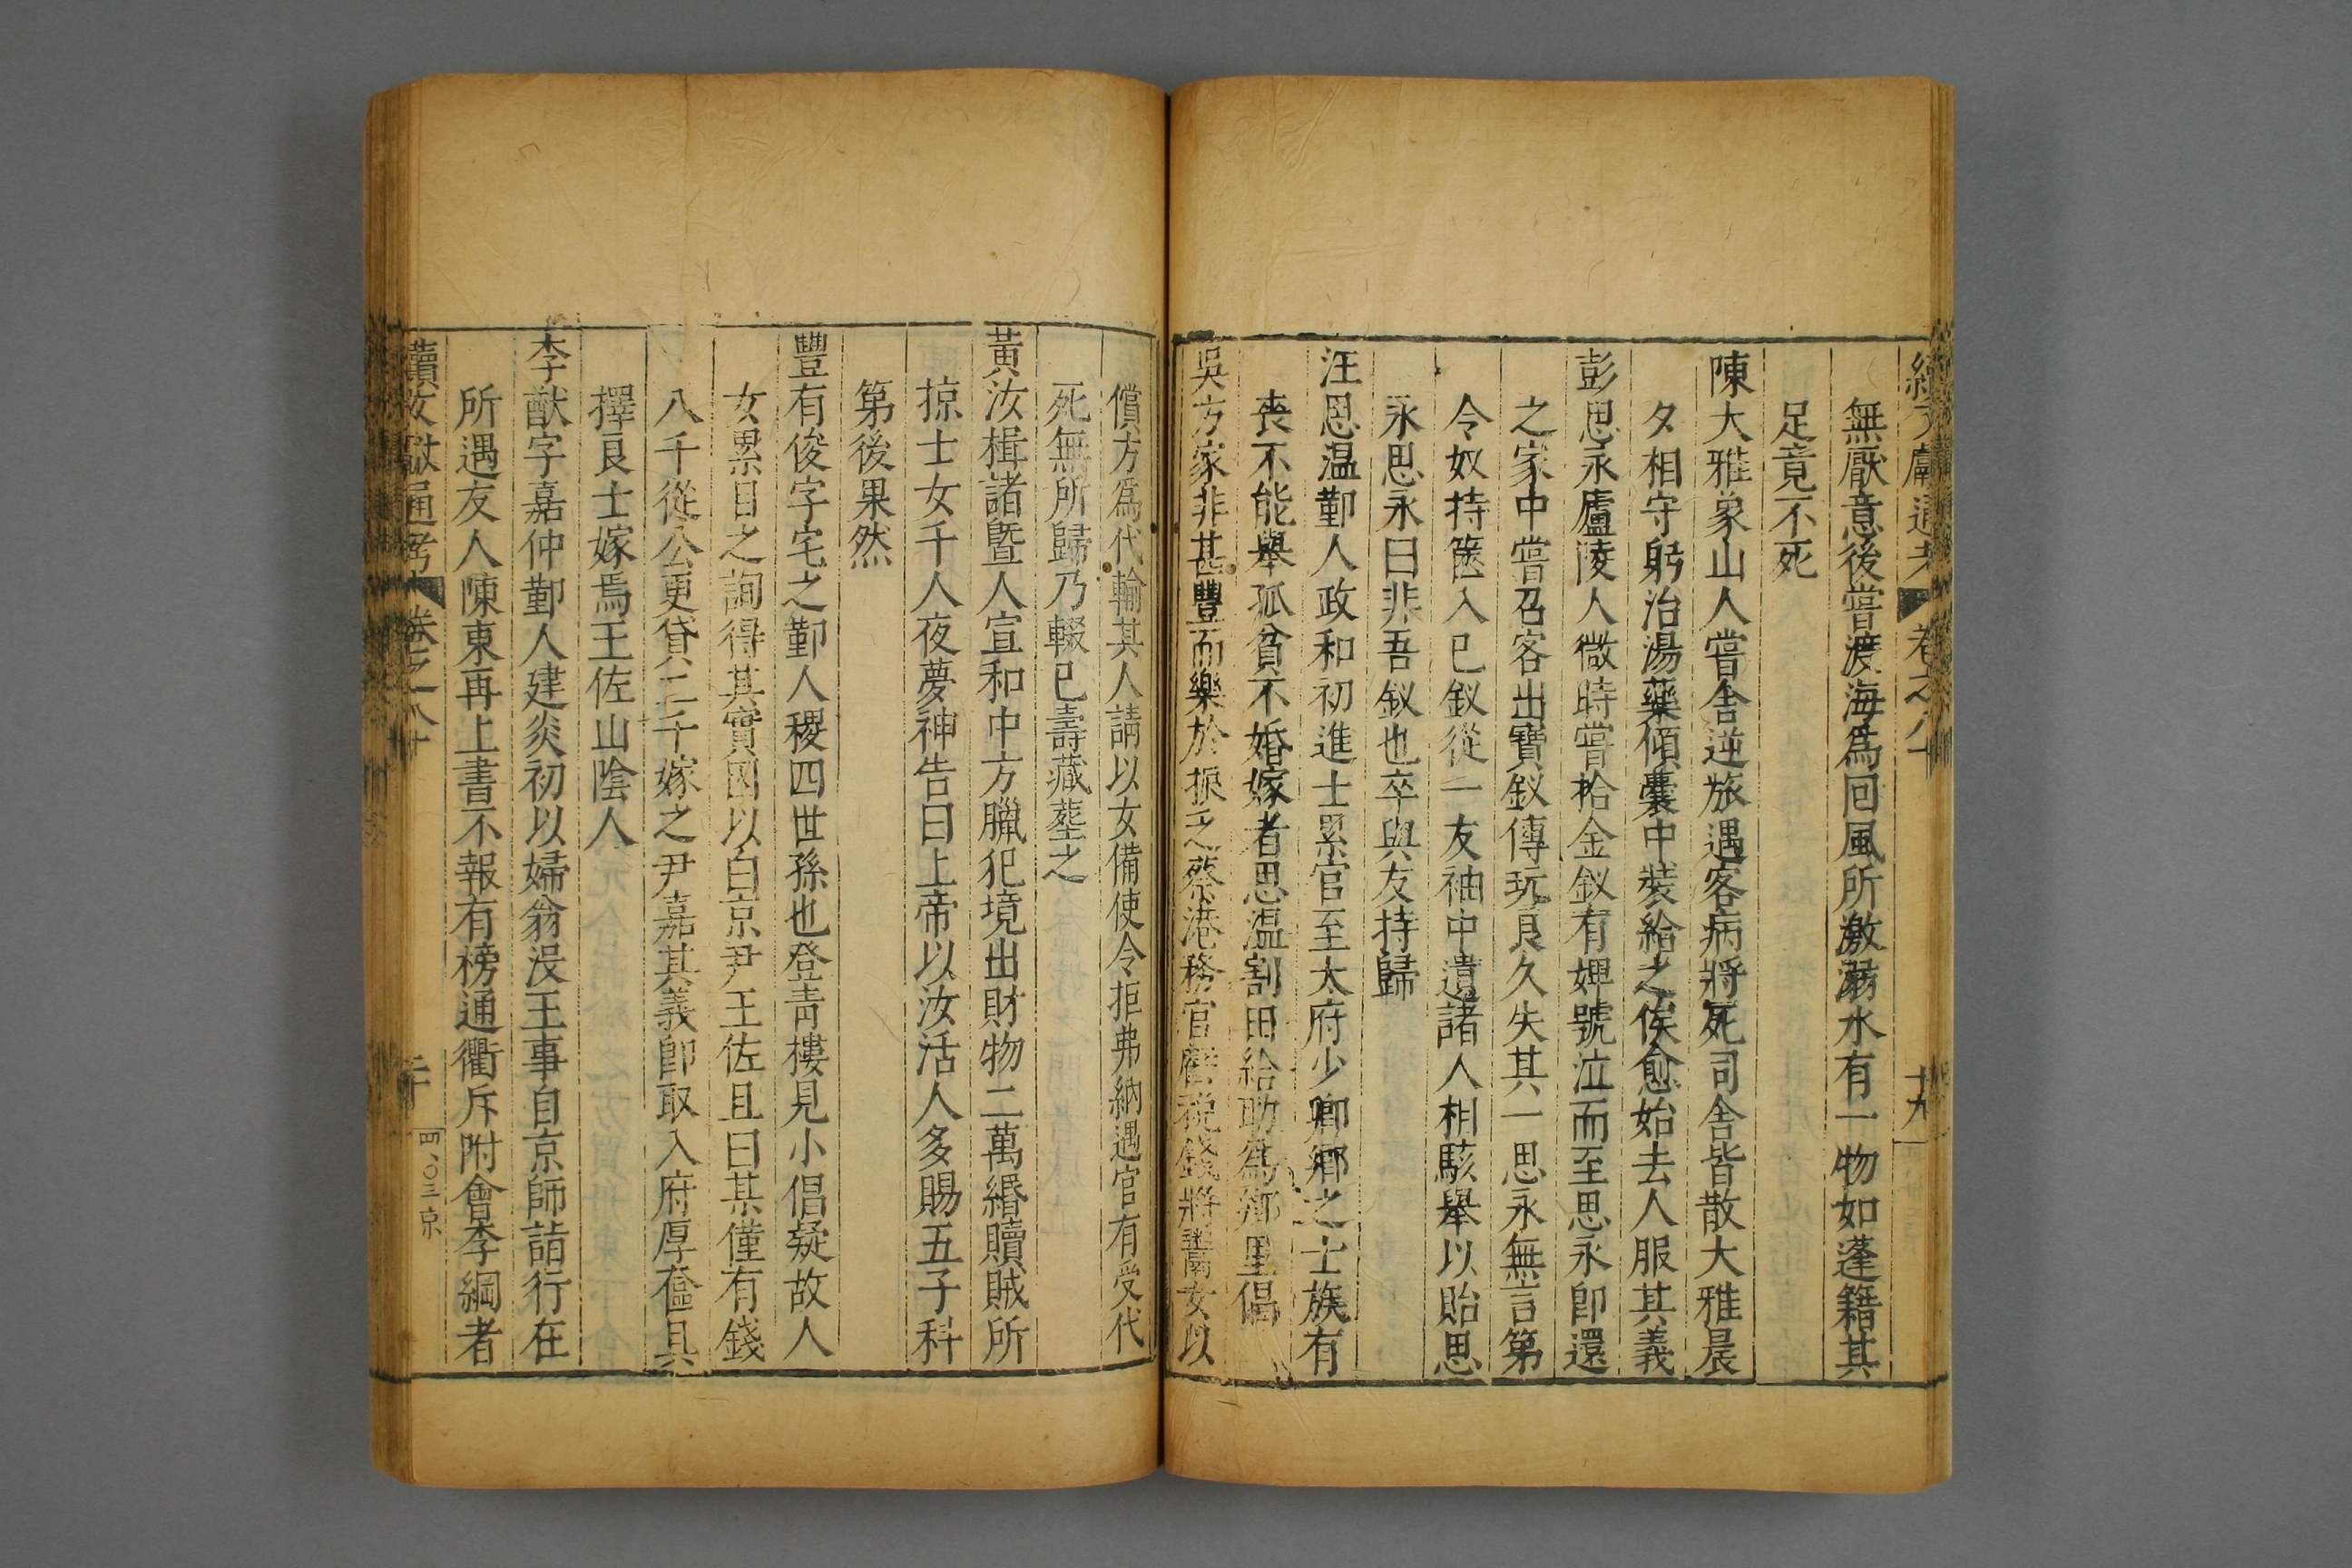 續文獻通考 卷之八十 十九
無厭意後嘗渡海爲回風所激溺水有一物如蓬籍其
足竟不死
陳大雅象山人嘗舎逆旅遇客病將死司舎皆散大雅晨
夕相守躬治湯藥傾囊中裝給之俟愈始去人服其義
彭思永廬陵人微時嘗拾金釵有婢號泣而至思永卽還
之家中嘗召客出寶釵傳玩良久失其一思永無言第
令奴持篋入已釵從一友袖中遺諸人相駭舉以貽思
永思永曰非吾釵也卒與友持歸
汪思温鄞人政和初進士累官至太府少卿鄉之士族有
喪不能舉孤貧不婚嫁者思温割田給助爲鄉里倡
吳方家非甚豐而樂於振乏蔡港務官虧稅錢將鬻女以
償方爲代輸其人請以女備使令拒弗納遇官有受代
死無所歸乃輟已壽藏塟之
黃汝楫諸曁人宣和中方臘犯境出財物二萬緡贖賊所
掠士女千人夜夢神告曰上帝以汝活人多賜五子科
第後果然
豐有俊字宅之鄞人稷四世孫也登青樓見小倡疑故人
女累目之詢得其實因以白京尹王佐且曰某僅有錢
八千從公更貸二千嫁之尹嘉其義卽取入府厚奩具
擇良士嫁焉王佐山陰人
李猷字嘉仲鄞人建炎初以婦翁没王事自京師詣行在
所遇友人陳東再上書不報有榜通衢斥附會李綱者
續文獻通考 卷之八十 二十 四〇三京